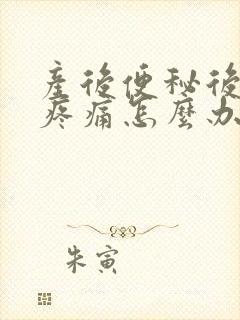 產後便秘後
疼痛怎麼办
朱寅